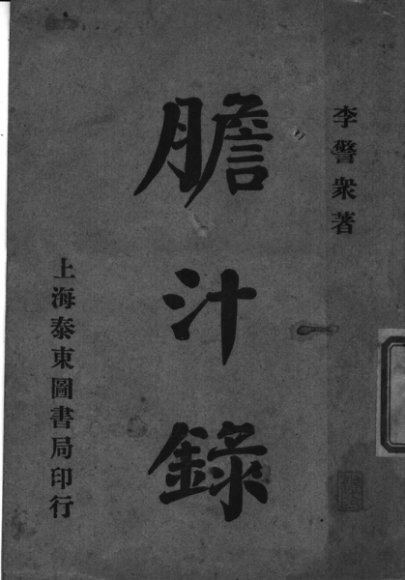 李警衆著
膽汁錄
上海泰東圖書局印行